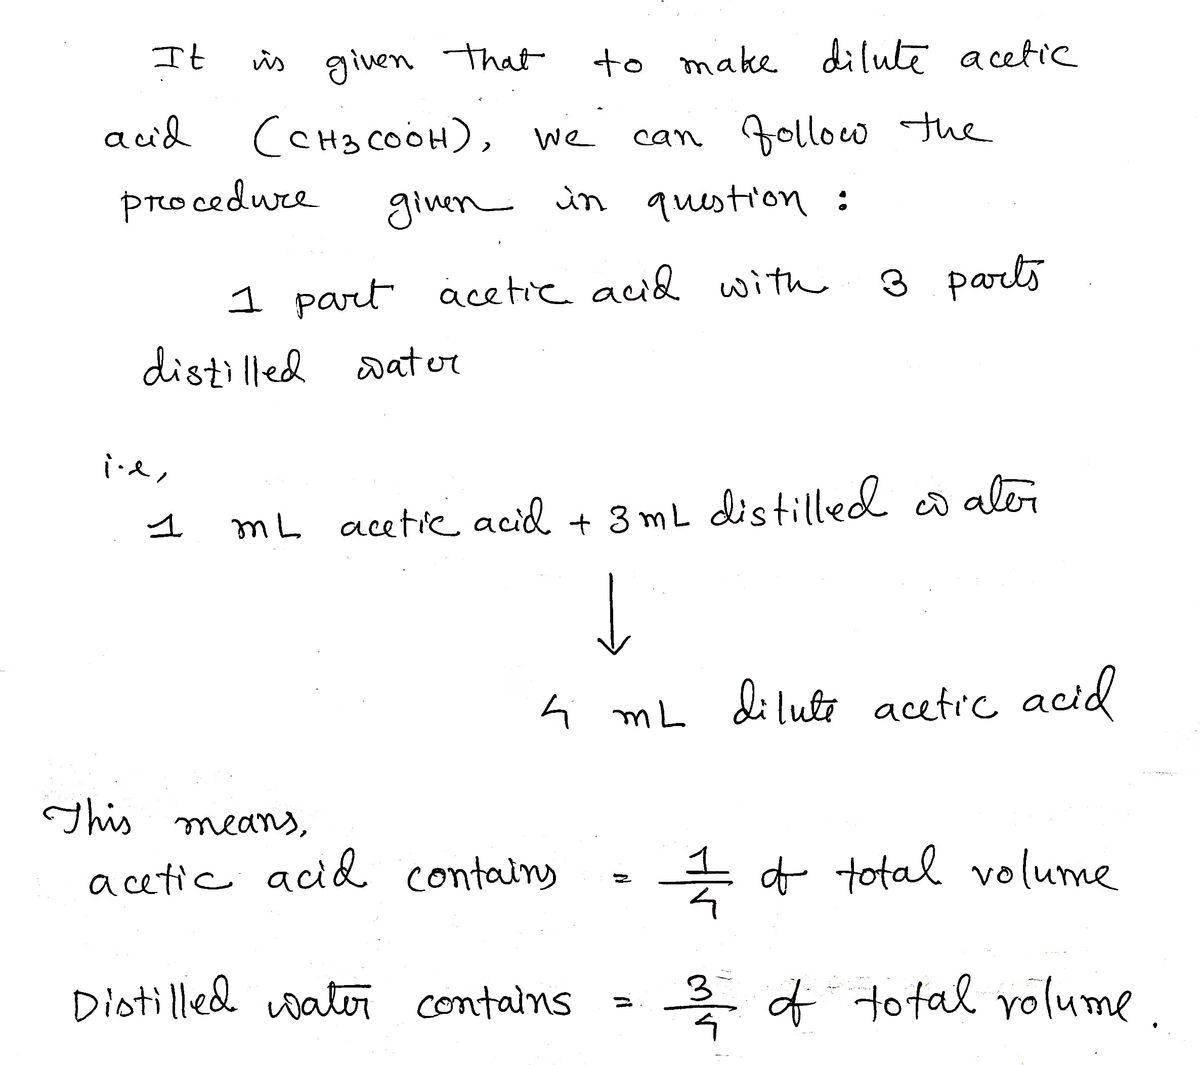 It is given that to make dilute acetic
acid (CH3COOH), we can follow the
procedure given in question :
1 part acetic acid with 3 parts
distilled water
i.e,
1 mL acetic acid + 3 mL distilled water
↓
4 mL dilute acetic acid
This means,
acetic acid contains = 1/4 of total volume
Distilled water contains = 3/4 of total volume.